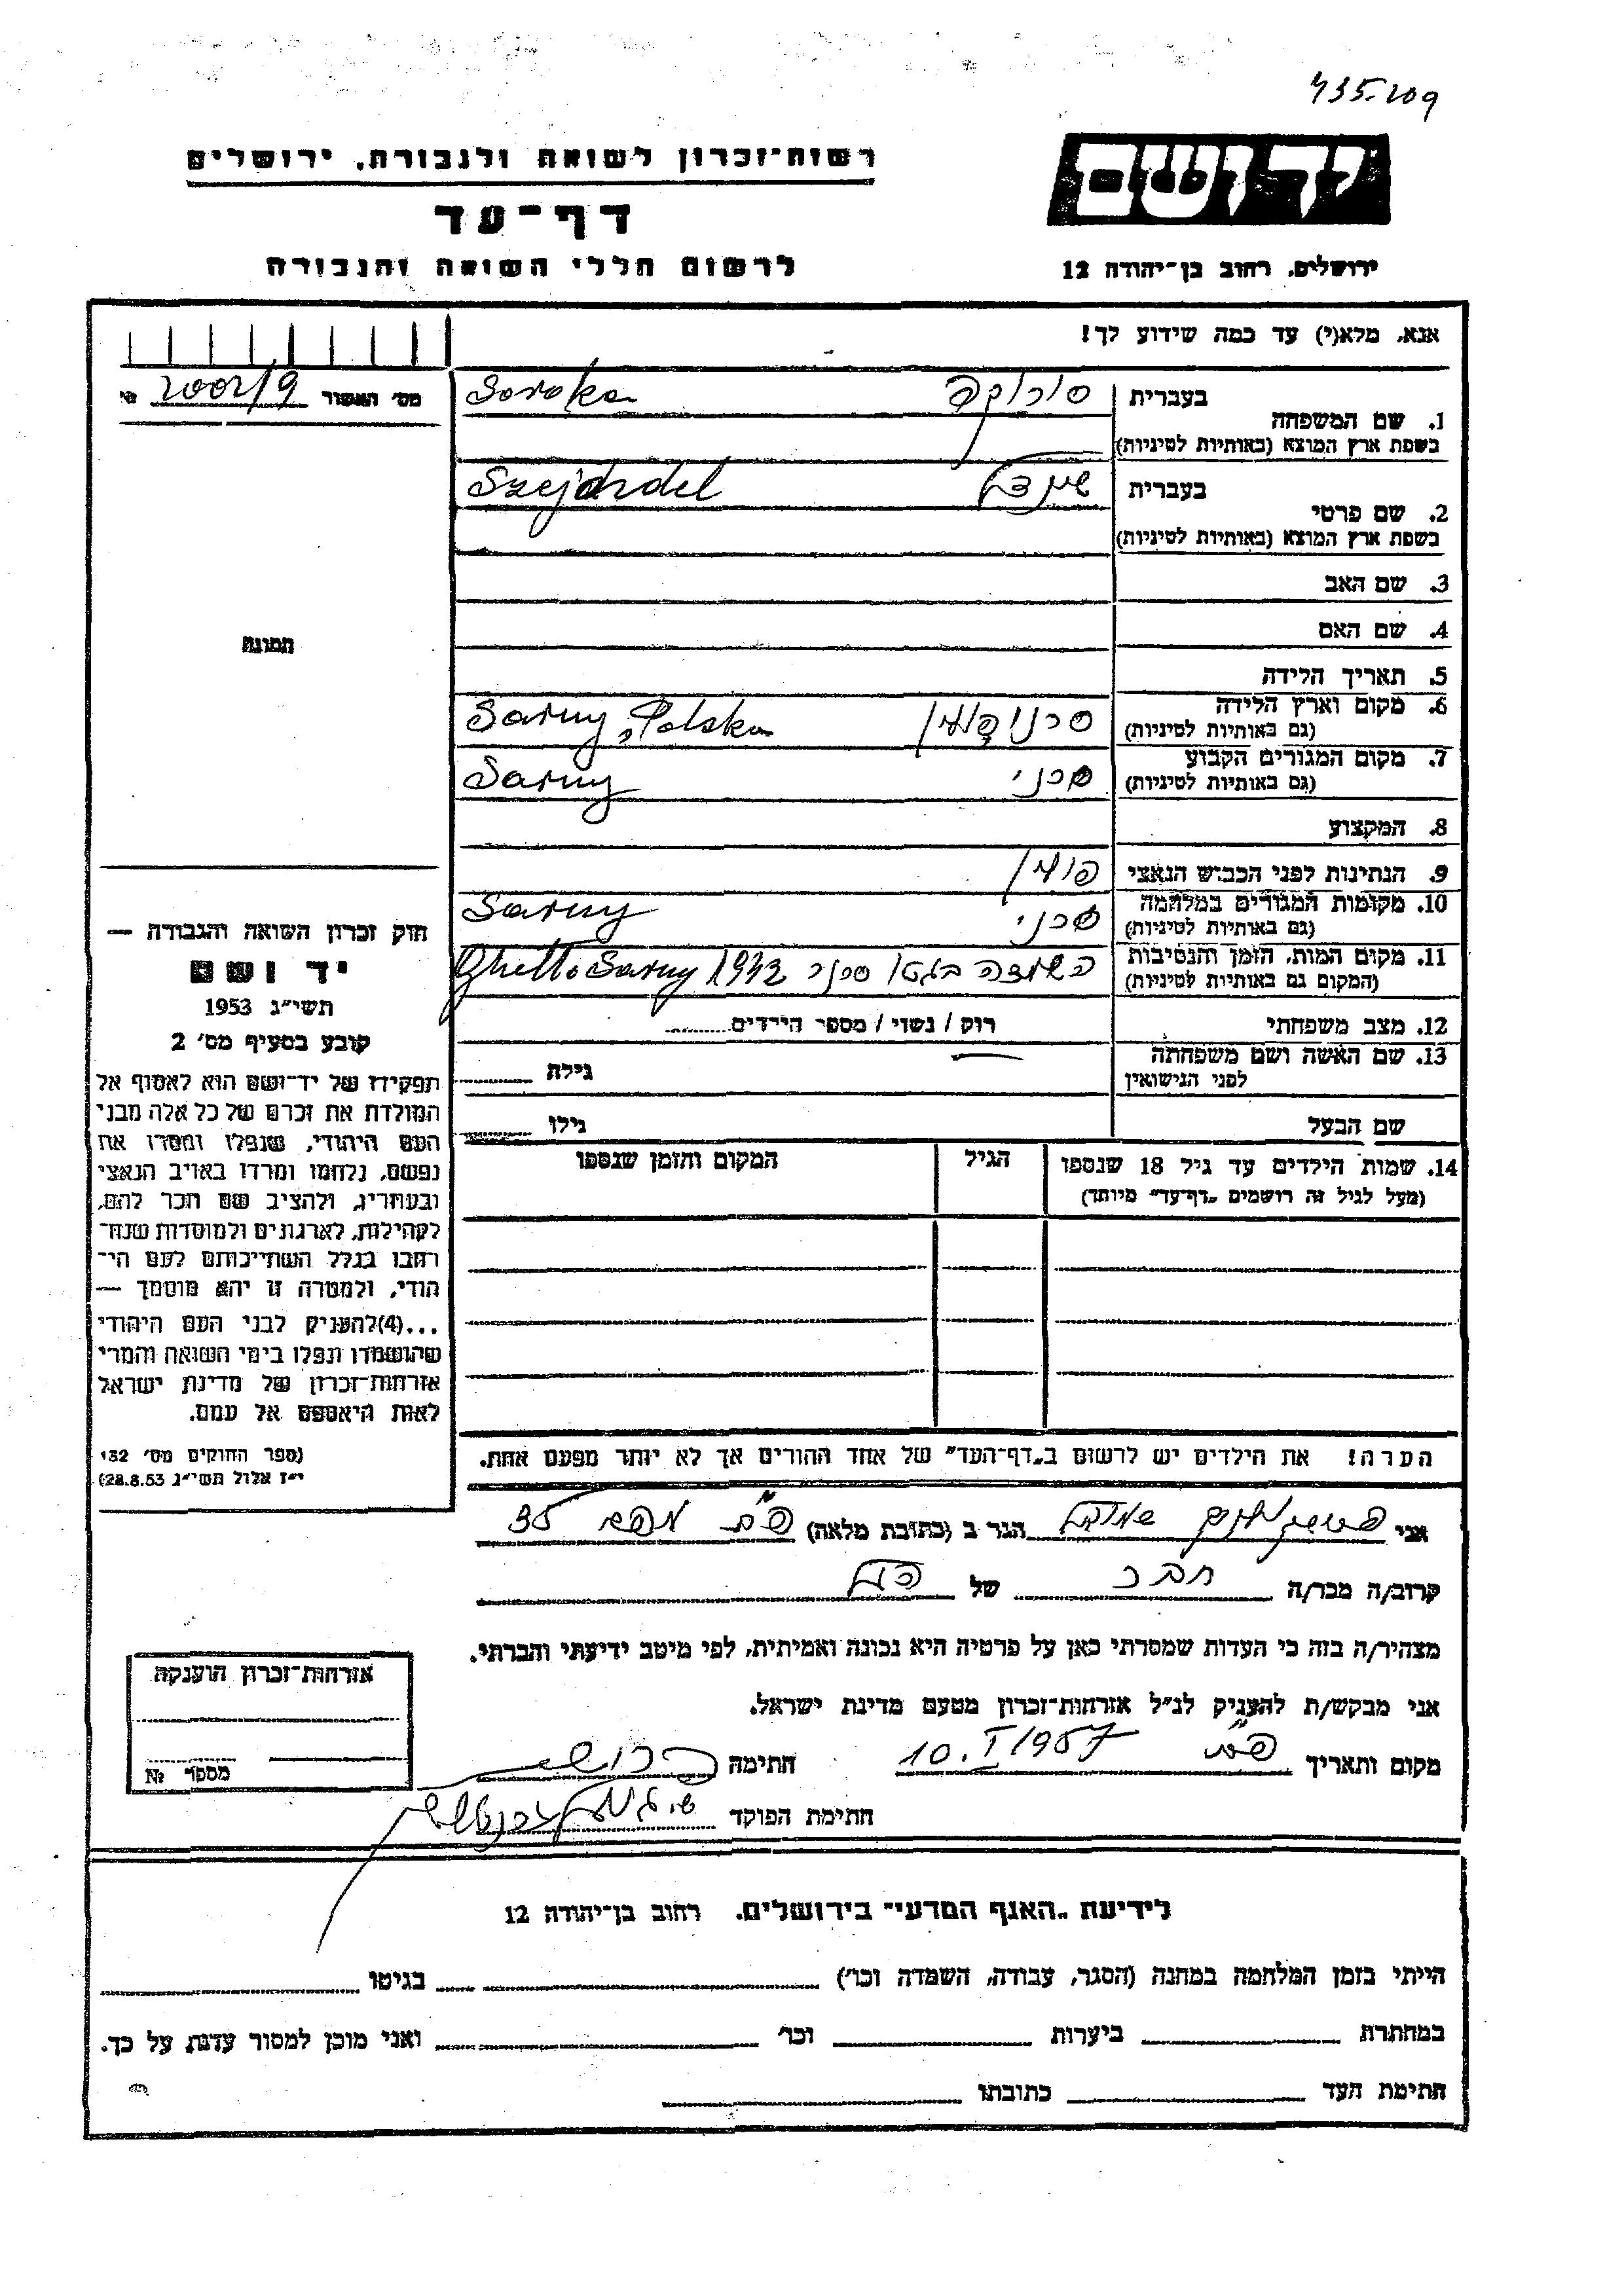 435.209
רשות־זכרון לשואה ולגבורה, ירושלים
דף־עד
לרשום חללי השואה והגבורה
יד ושם
ירושלים, רחוב בן־יהודה 12
אנא, מלא(י) עד כמה שידוע לך!
מס׳ האשור № 2002/9
1. שם המשפחה
בעברית סורוקה Soroka
בשפת ארץ המוצא (באותיות לטיניות)
2. שם פרטי
בעברית שיינדל Szejndel
בשפת ארץ המוצא (באותיות לטיניות)
3. שם האב
4. שם האם
5. תאריך הלידה
6. מקום וארץ הלידה סרני פולין Sarny, Polska
(גם באותיות לטיניות)
7. מקום המגורים הקבוע סרני Sarny
(גם באותיות לטיניות)
8. המקצוע
9. הנתינות לפני הכבוש הנאצי פולין
10. מקומות המגורים במלחמה סרני Sarny
(גם באותיות לטיניות)
11. מקום המות, הזמן והנסיבות הושמדה בגטו סרני 1942 Ghetto Sarny
(המקום גם באותיות לטיניות)
12. מצב משפחתי רוק / נשוי / מספר הילדים
13. שם האשה ושם משפחתה גילה
לפני הנישואין
שם הבעל גילו
14. שמות הילדים עד גיל 18 שנספו הגיל המקום והזמן שנספו
(מעל לגיל זה רושמים „דף־עד״ מיוחד)
הערה! את הילדים יש לרשום ב„דף־העד״ של אחד ההורים אך לא יותר מפעם אחת.
תמונה
חוק זכרון השואה והגבורה —
יד ושם
תשי״ג 1953
קובע בסעיף מס׳ 2
תפקידו של יד־ושם הוא לאסוף אל
המולדת את זכרם של כל אלה מבני
העם היהודי, שנפלו ומסרו את
נפשם, נלחמו ומרדו באויב הנאצי
ובעוזריו, ולהציב שם וזכר להם,
לקהילות, לארגונים ולמוסדות שנח־
רבו בגלל השתייכותם לעם הי־
הודי, ולמטרה זו יהא מוסמך —
...(4) להעניק לבני העם היהודי
שהושמדו ונפלו בימי השואה והמרי
אזרחות־זכרון של מדינת ישראל
לאות היאספם אל עמם.
(ספר החוקים מס׳ 132
י״ז אלול תשי״ג 28.8.53)
אני הגר ב (כתובת מלאה) 35
קרוב/ה מכר/ה חבר של
מצהיר/ה בזה כי העדות שמסרתי כאן על פרטיה היא נכונה ואמיתית, לפי מיטב ידיעתי והכרתי.
אני מבקש/ת להעניק לנ״ל אזרחות־זכרון מטעם מדינת ישראל.
מקום ותאריך 10.I 1957 חתימה
חתימת הפוקד
אזרחות־זכרון הוענקה
מספר №
לידיעת „האגף המדעי״ בירושלים, רחוב בן־יהודה 12
הייתי בזמן המלחמה במחנה (הסגר, עבודה, השמדה וכו׳) בגיטו
במחתרת ביערות וכו׳ ואני מוכן למסור עדות על כך.
חתימת העד כתובתו